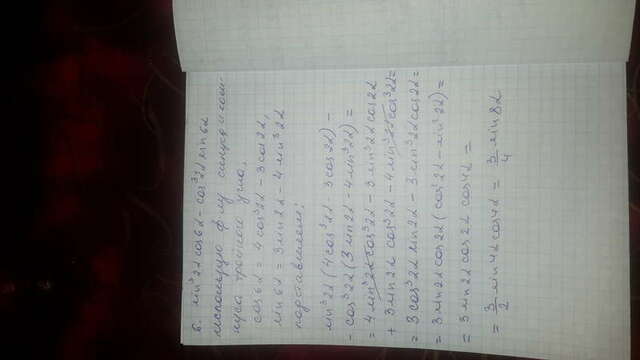 6. sin³2α cos6α - cos³2α sin6α
использую ф-лу синуса и коси-
нуса тройного угла,
cos6α = 4cos³2α - 3cos2α,
sin6α = 3sin2α - 4sin³2α
подставляем:
sin³2α(4cos³2α 3cos2α) -
- cos³2α(3sin2α - 4sin³2α) =
= 4sin³2α cos³2α - 3sin³2α cos2α
+ 3sin2α cos³2α - 4sin³2α cos³2α =
= 3cos³2α sin2α - 3sin³2α cos2α =
= 3sin2α cos2α(cos²2α - sin²2α) =
= 3sin2α cos2α cos4α =
= 3/2 sin4α cos4α = 3/4 sin8α